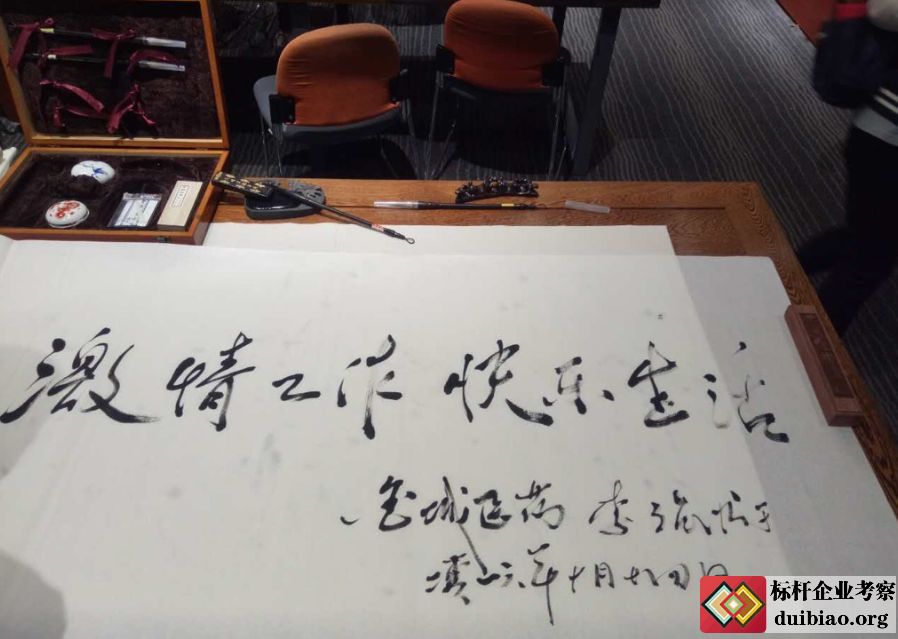 激情工作 快乐生活
金城医药 李
年十月十
标杆企业考察
duibiao.org